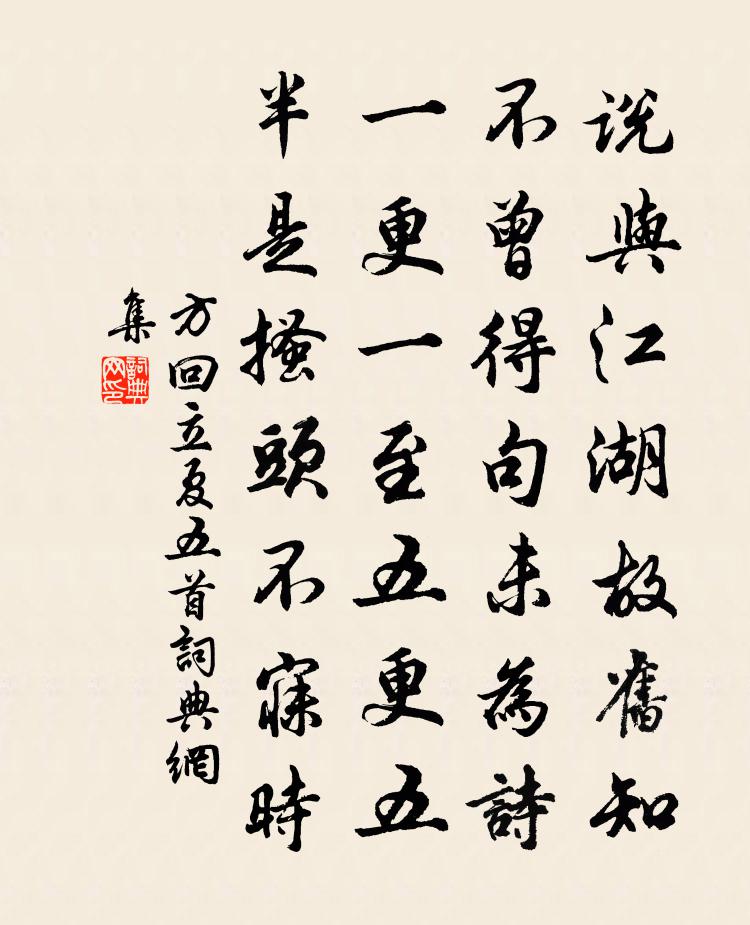 说與江湖故舊知
不曾得句未為詩
一更一至五更五
半是搔頭不寐時
方回立夏五首詞典網
集
詞典网印